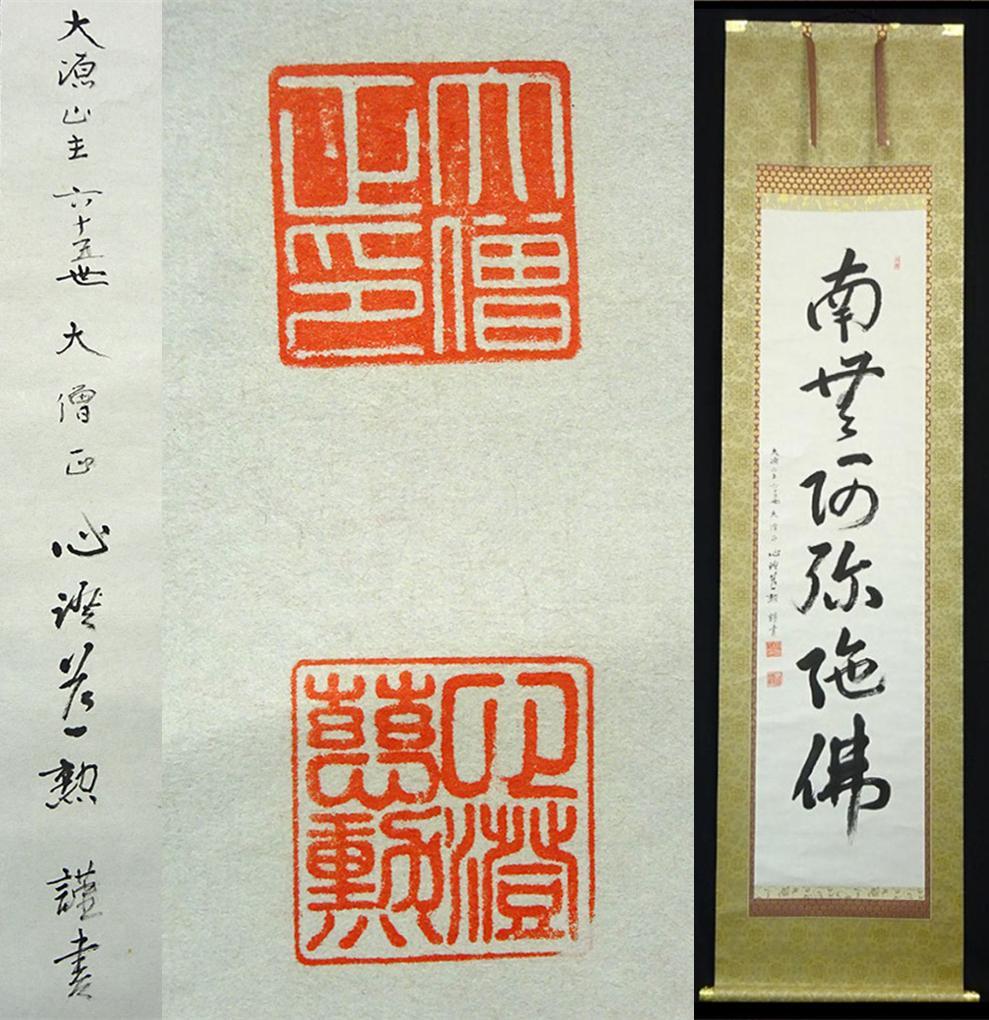 大源山主 六十五世 大僧正 心澄慈勲 謹書
大僧
正印
心澄
慈勳
南無阿弥陀佛
大源山主 六十五世 大僧正 心澄慈勲 謹書